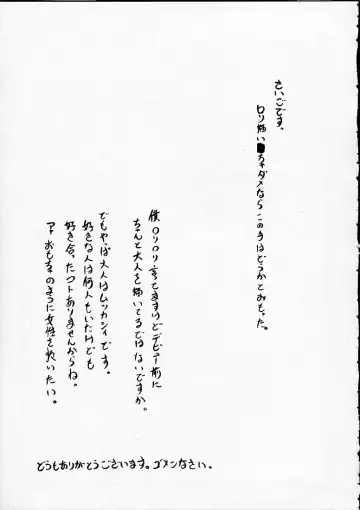 さいごです。
ロリ描いちゃダメならこの手はどうかとおもった。
僕ロリロリ言ってますけどデビュー前に
ちゃんと大人を描いてるではないですか。
でもやっぱ大人はムツカシイです。
好きな人は何人もいたけども
好き合ったコトありませんからね。
アトおもちゃのように女性を扱いたい。
どうもありがとうございます。ゴメンなさい。